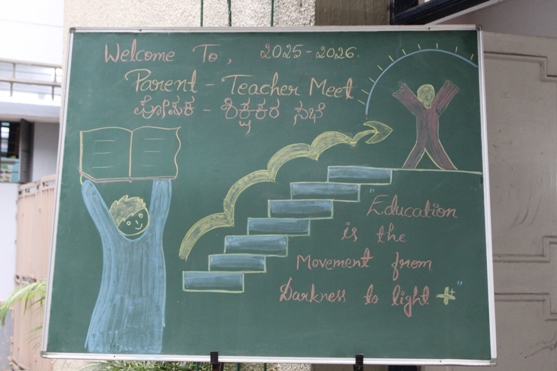 Welcome To, 2025-2026.
Parent - Teacher Meet
ಪೋಷಕ - ಶಿಕ್ಷಕರ ಸಭೆ
"Education
is the
Movement from
Darkness to light"